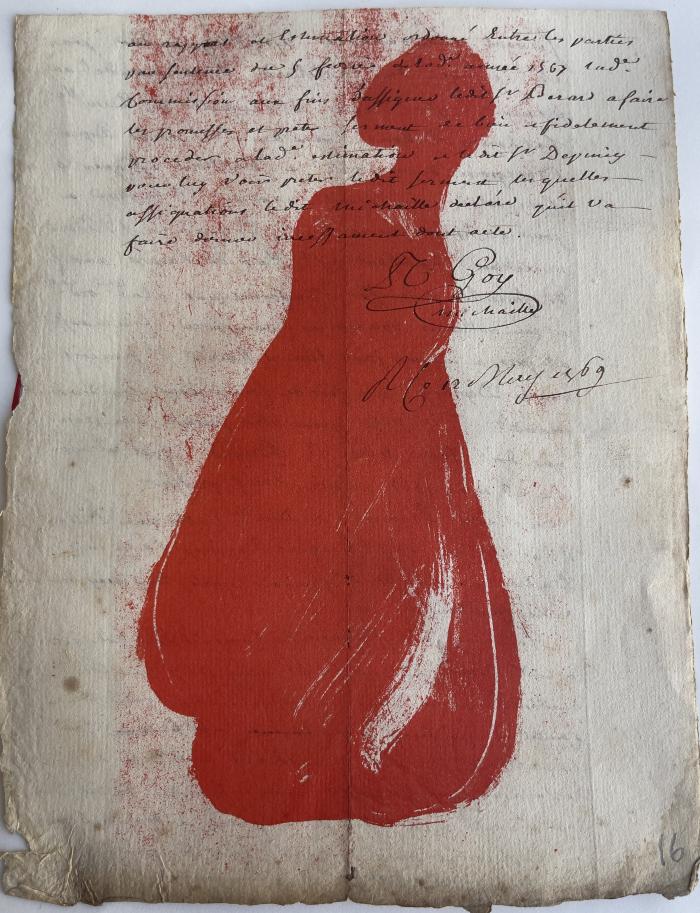 au rapport et Estimation ordonné Entre les parties
par sentence du 5 fevrier de lad.e année 1567 lad.e
Commission aux fins d'assigner ledit Sr Berard a faire
les et preter serment de bien & fidelement
proceder a lad.e estimation et ledit Sr Depuiey
pour luy voir preter ledit serment lesquelles
assignations ledit michaille declare qu'il va
faire donner incessament dont acte.
Goy
michaille
12 May 1569
16